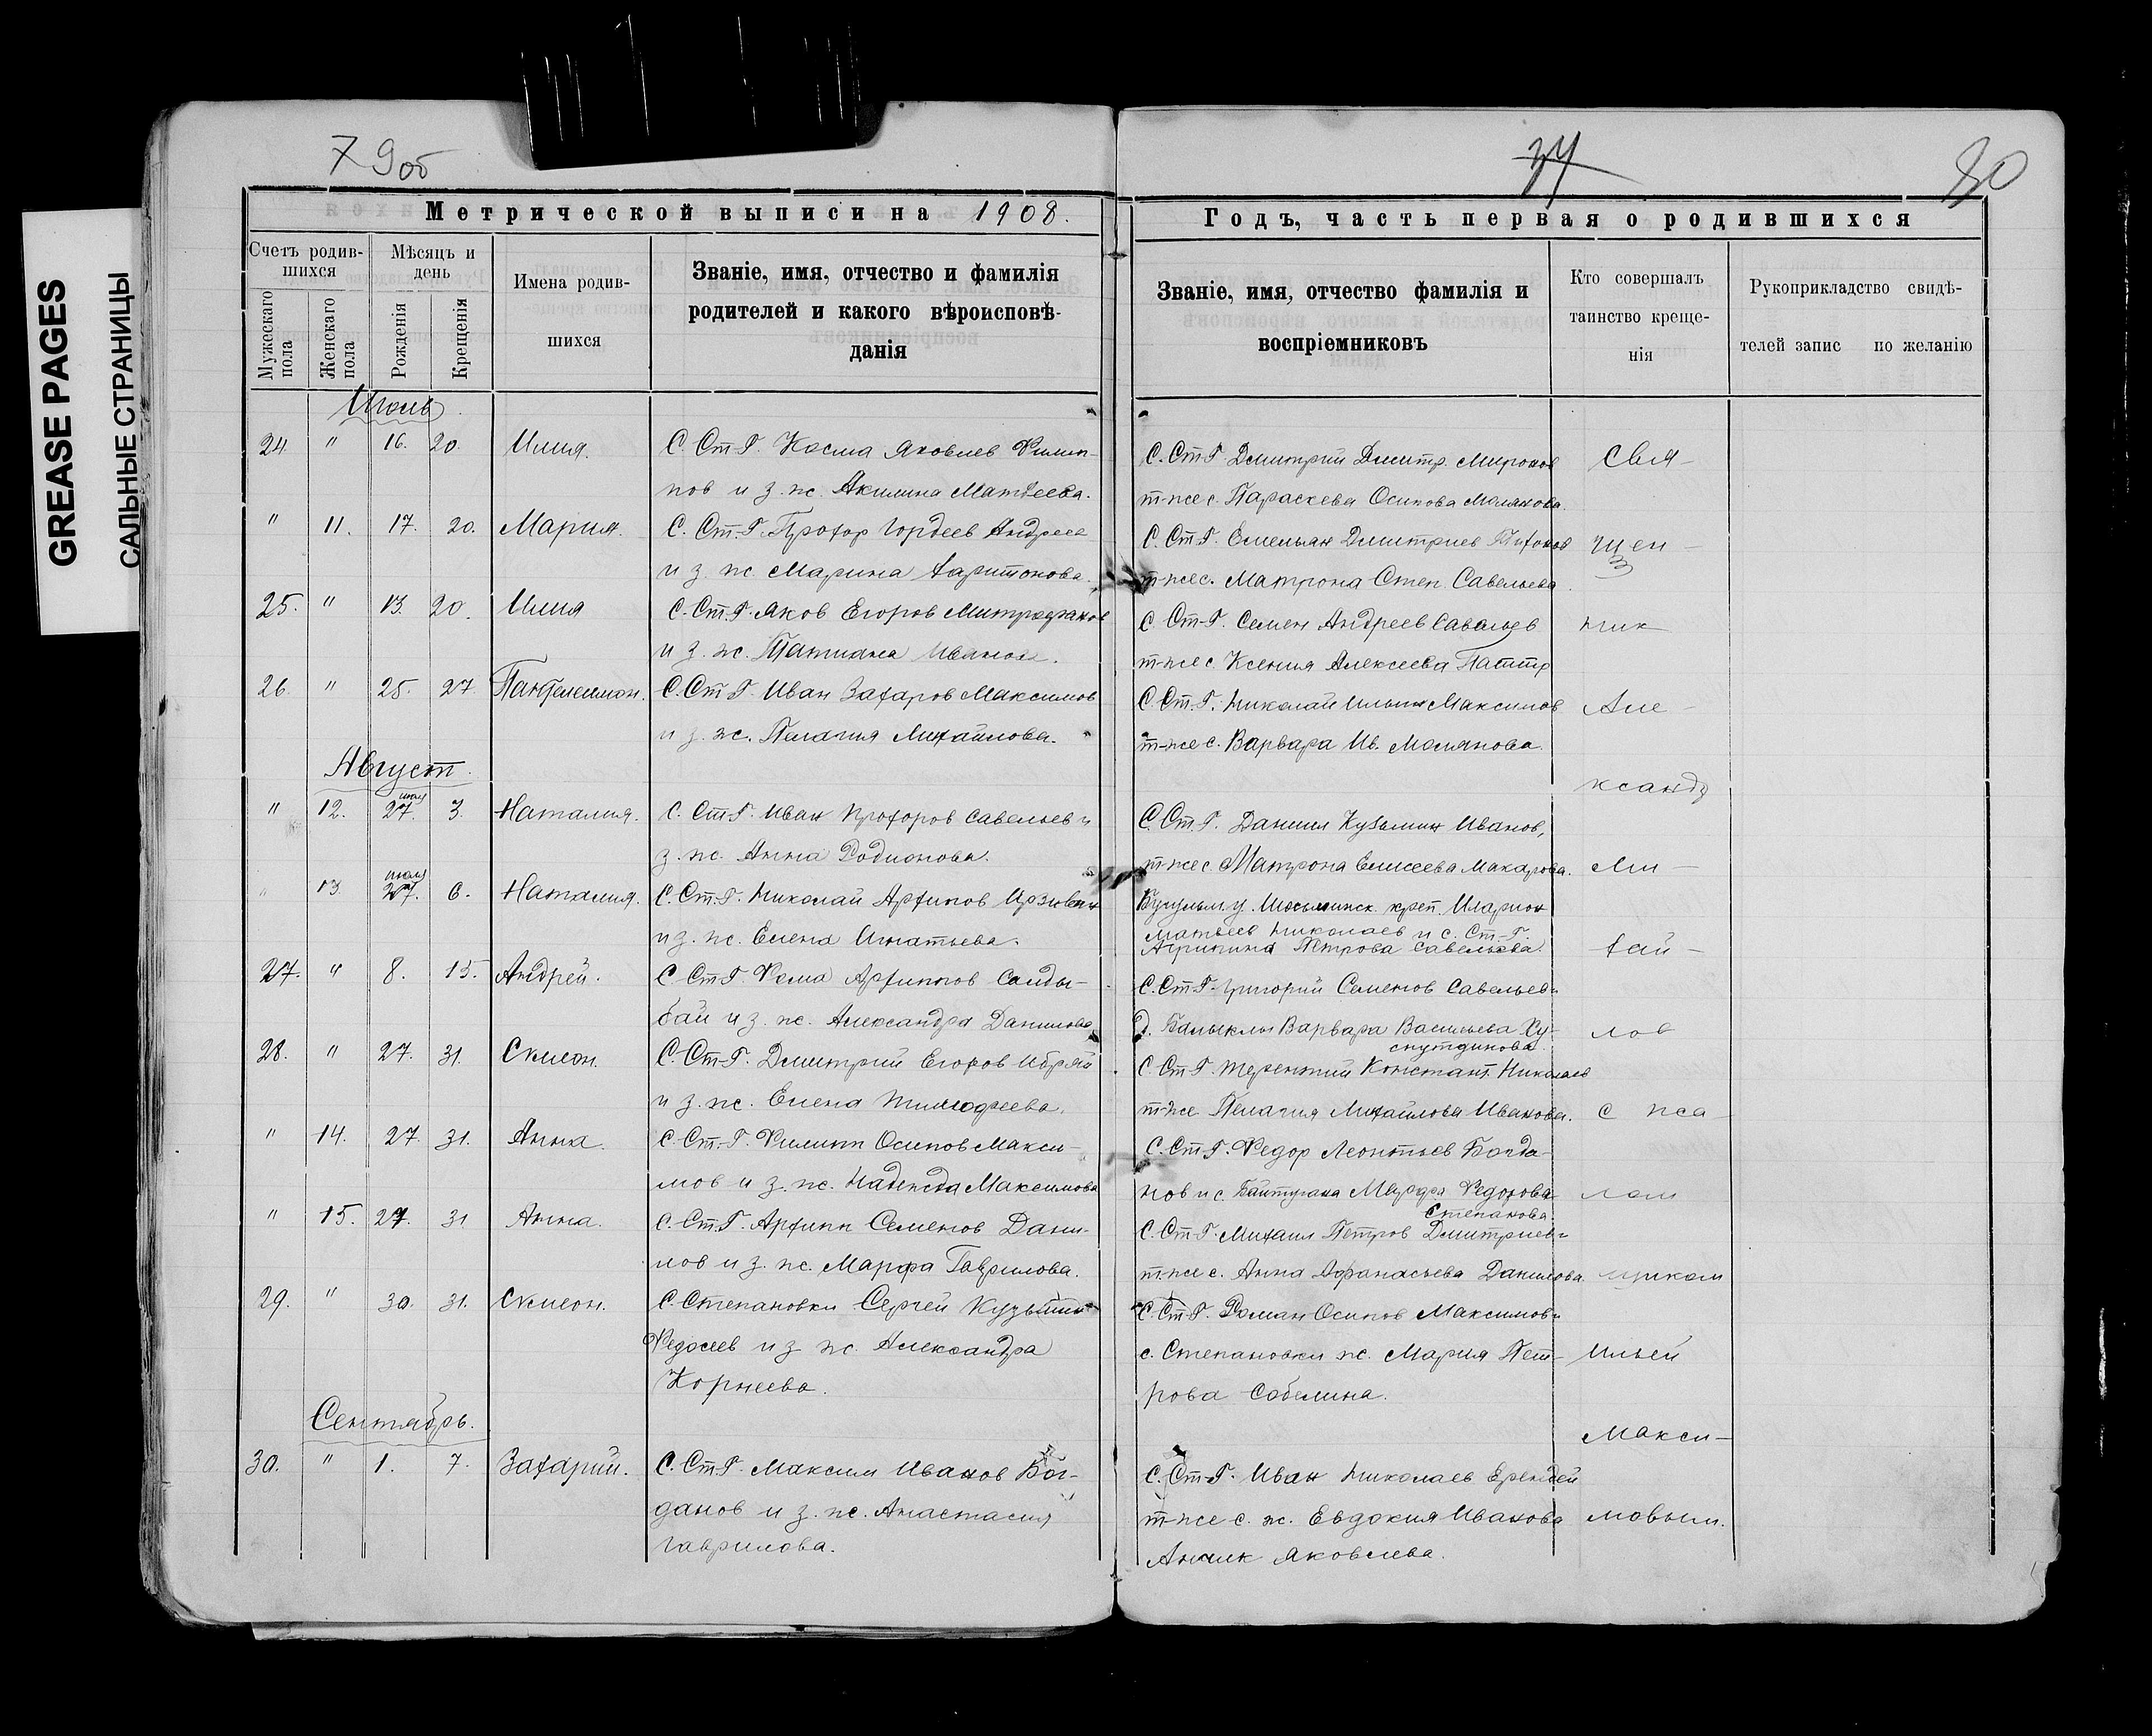 GREASE PAGES
САЛЬНЫЕ СТРАНИЦЫ
79об
37
80
Метрической выписи на 1908.
Годъ, часть первая о родившихся
Счетъ родив-
шихся
Мужескаго пола
Женскаго пола
Мѣсяцъ и
день
Рожденія
Крещенія
Имена родив-
шихся
Званіе, имя, отчество и фамилія
родителей и какого вѣроисповѣ-
данія
Званіе, имя, отчество фамилія и
воспріемниковъ
Кто совершалъ
таинство креще-
нія
Рукоприкладство свидѣ-
телей запис по желанію
Июль
24. " 16. 20. Илия. С. Ст-Г. Косма Яковлев Филип-
пов и з. ж. Акилина Матвеева.
С. Ст-Г. Димитрий Димитр. Миронов
т-же с. Параскева Осипова Молянова.
Свя-
" 11. 17. 20. Мария. С. Ст-Г. Прохор Гордеев Андреев
и з. ж. Марина Харитонова.
С. Ст-Г. Емельян Димитриев Тихонов
т-же с. Матрона Степ. Савельева.
щен-
25. " 13. 20. Илия С. Ст-Г. Яков Егоров Митрофанов
и з. ж. Татиана Иванова.
С. Ст-Г. Семен Андреев Савельев
т-же с. Ксения Алексеева
ник
26. " 25. 27. Пантелеимон. С. Ст-Г. Иван Захаров Максимов
и з. ж. Пелагия Михайлова.
С. Ст-Г. Николай Ильин Максимов
т-же с. Варвара Ив. Молянова.
Але-
Август.
ксандр
" 12. июля 27. 3. Наталия. С. Ст-Г. Иван Прохоров Савельев и
з. ж. Анна Родионова.
С. Ст-Г. Даниил Кузьмин Иванов,
т-же с. Матрона Елисеева Макарова.
Ми-
" 13. июля 27. 6. Наталия. С. Ст-Г. Николай Архипов
и з. ж. Елена Игнатьева.
Бугульм. у. креп. Иларион
Матвеев Николаев и с. Ст-Г.
Агрипина Петрова Савельева.
хай-
27. " 8. 15. Андрей. С. Ст-Г. Фома Архипов Санды-
бай и з. ж. Александра Данилова.
С. Ст-Г. Григорий Семенов Савельев и
д. Балыклы Варвара Васильева Ху-
снутдинова.
лов
28. " 27. 31. Симеон. С. Ст-Г. Димитрий Егоров Ибряй
и з. ж. Елена Тимофеева.
С. Ст-Г. Терентий Констант. Николаев
т-же Пелагия Михайлова Иванова.
с пса-
" 14. 27. 31. Анна. С. Ст-Г. Филипп Осипов Макси-
мов и з. ж. Надежда Максимова
С. Ст-Г. Федор Леонтьев Богда-
нов и с. Байтугана Марфа Федорова
Степанова
лом
" 15. 27. 31 Анна. С. Ст-Г. Архипп Семенов Дани-
лов и з. ж. Марфа Гаврилова.
С. Ст-Г. Михаил Петров Димитриев и
т-же с. Анна Афанасьева Данилова.
щиком
29. " 30. 31. Симеон. С. Степановки Сергей Кузьмин
Федосеев и з. ж. Александра
Корнеева.
С. Ст-Г. Роман Осипов Максимов и
с. Степановки ж. Мария Пет-
рова Собелина.
Ильей
Сентябрь.
Макси-
30. " 1. 7. Захарий. С. Ст-Г. Максим Иванов Бог-
данов и з. ж. Анастасия
Гаврилова.
С. Ст-Г. Иван Николаев Ерендей
т-же с. ж. Евдокия Иванова
Яковлева.
мовым.